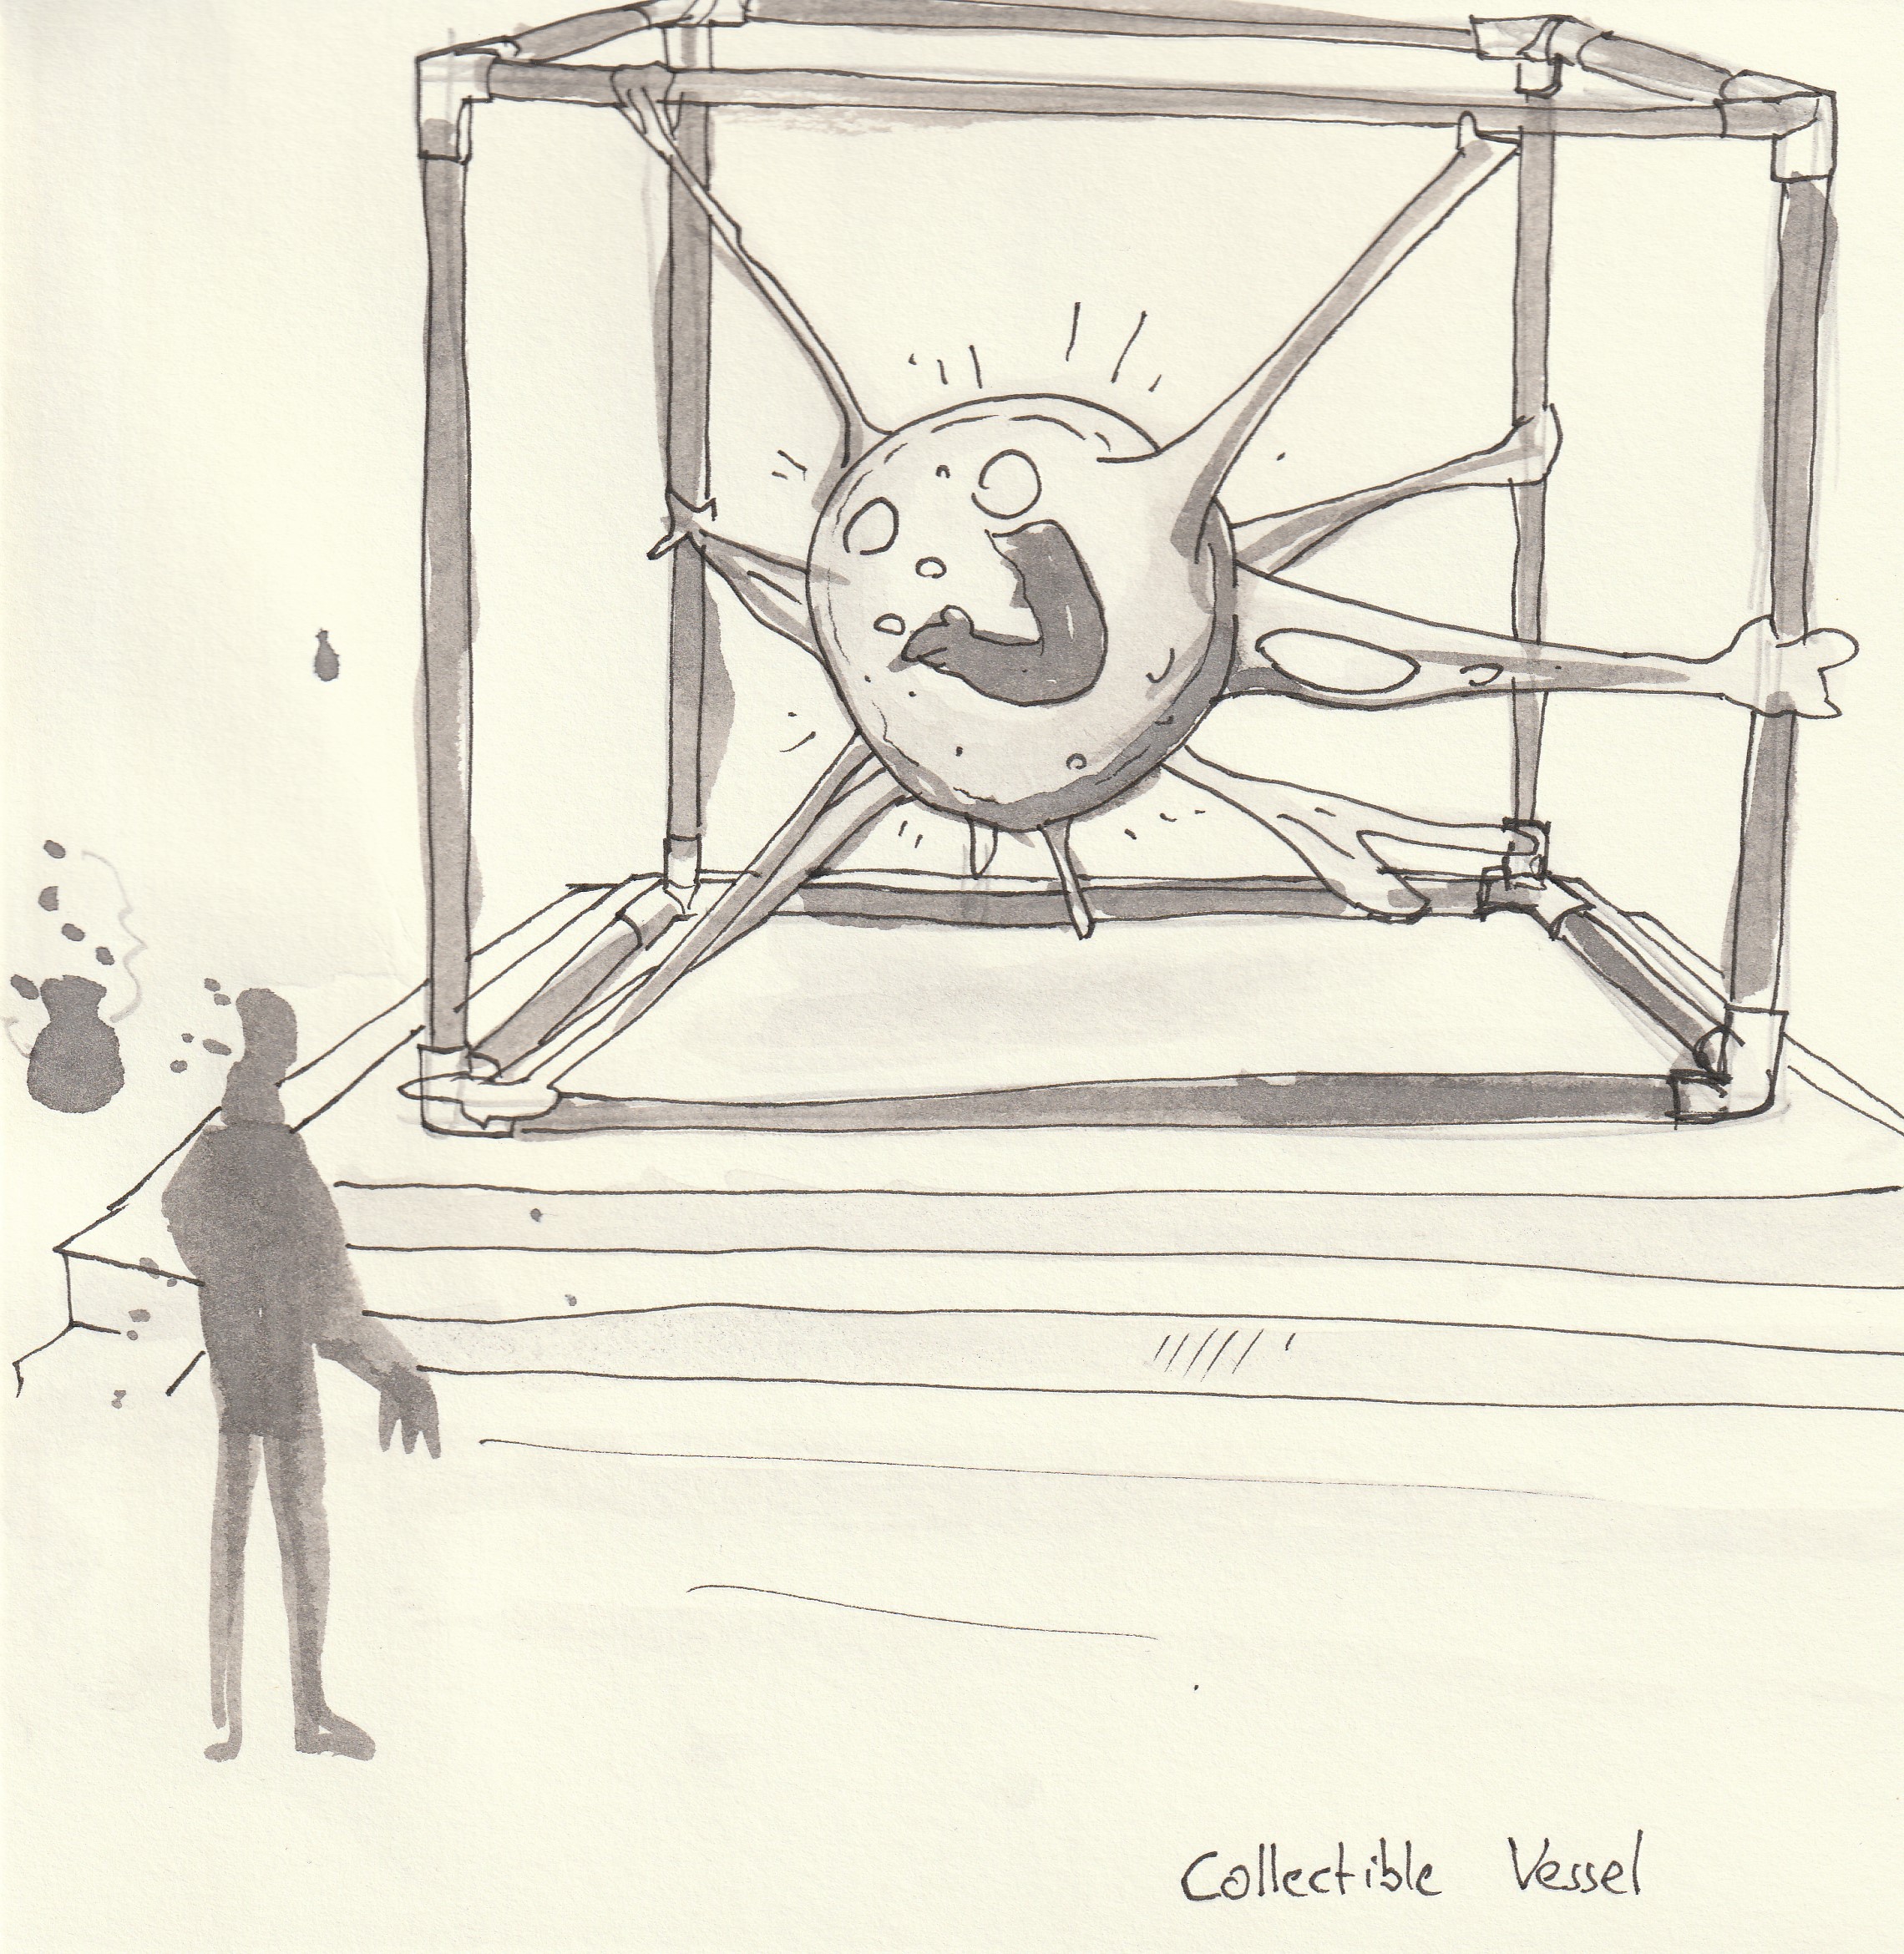 Collectible Vessel